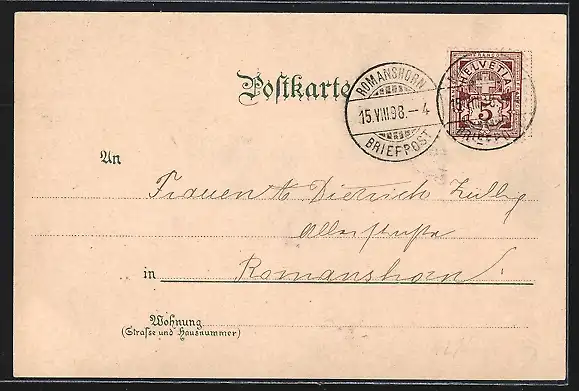 Postkarte
ROMANSHORN
15.VIII.98.-4
BRIEFPOST
FRANCO
HELVETIA
5
An
Dietrich Züllig
in Romanshorn
Wohnung
(Strasse und Hausnummer)